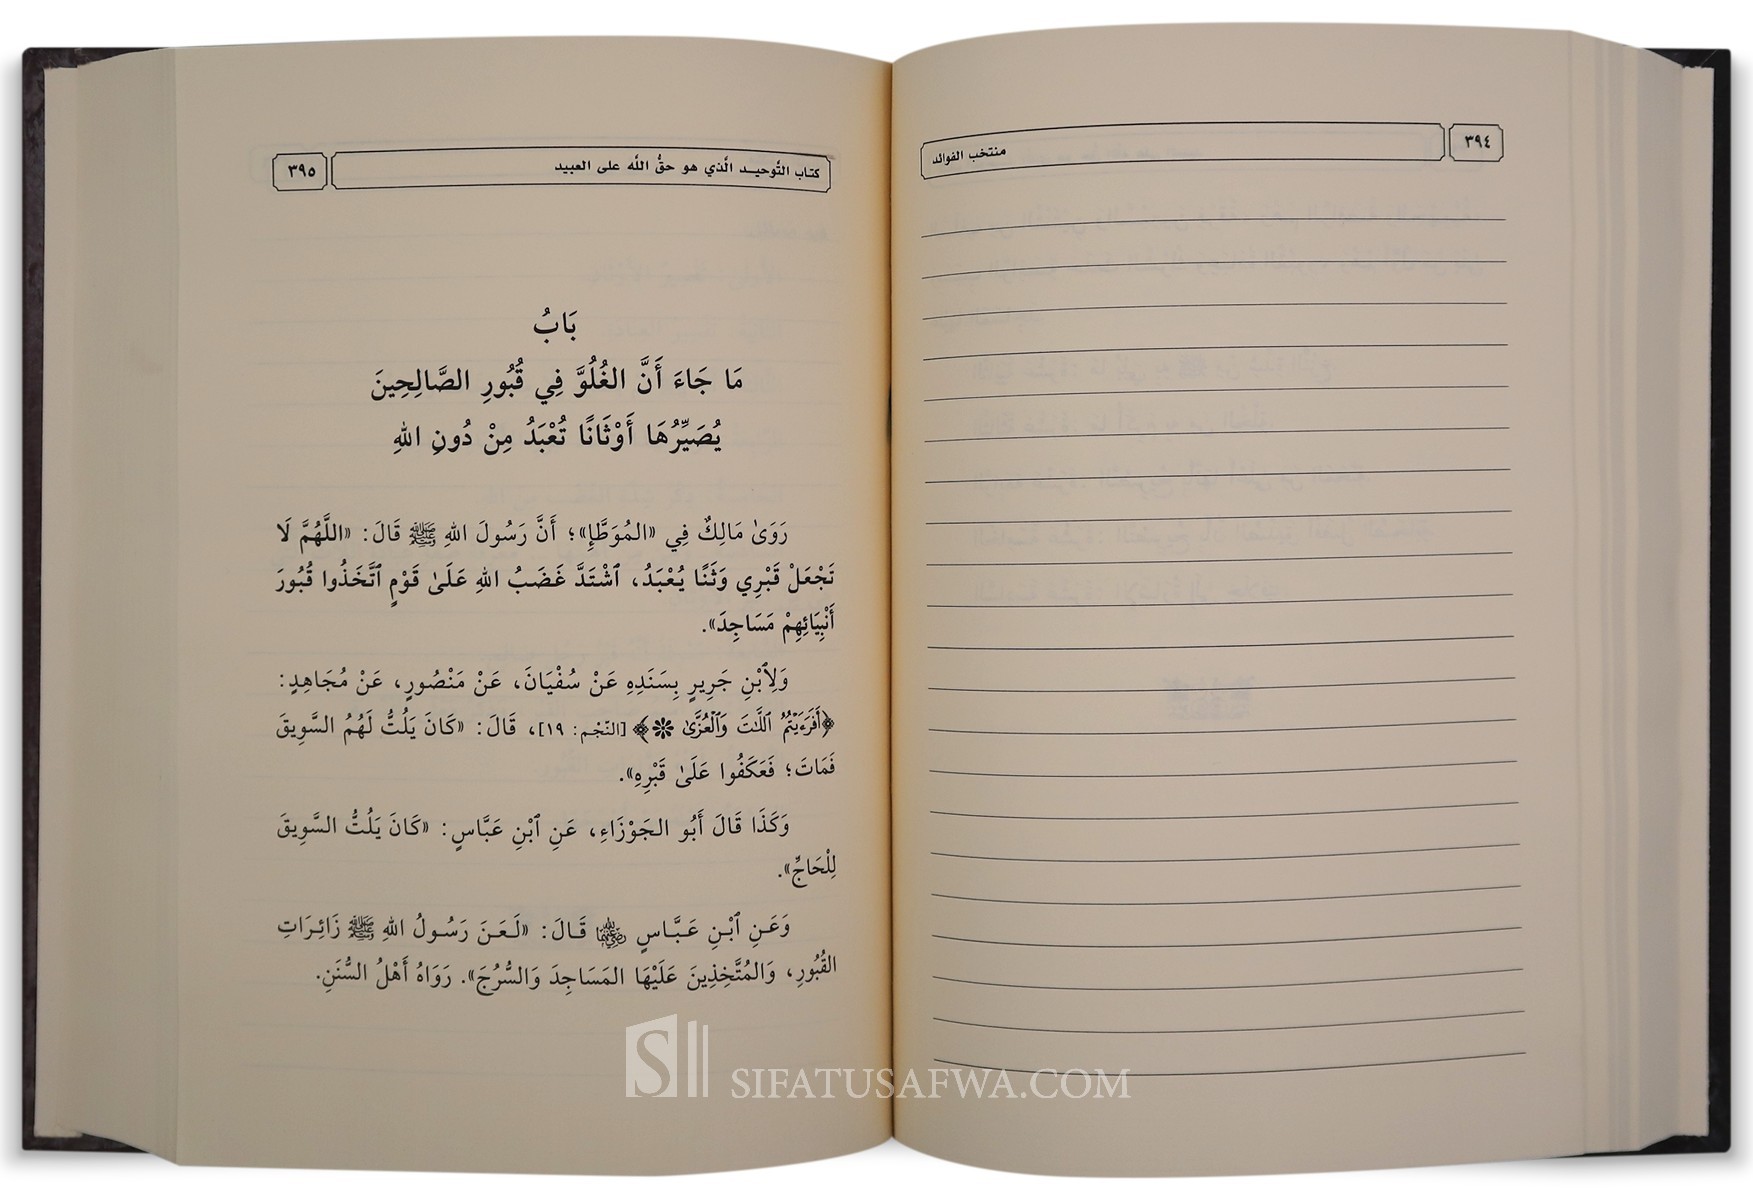 ٣٩٤
منتخب الفوائد
كتاب التَّوحيد الَّذي هو حقُّ اللّه على العبيد
٣٩٥
بَابُ
مَا جَاءَ أَنَّ الغُلُوَّ فِي قُبُورِ الصَّالِحِينَ
يُصَيِّرُهَا أَوْثَانًا تُعْبَدُ مِنْ دُونِ اللهِ
رَوَىٰ مَالِكٌ فِي «المُوَطَّإِ»؛ أَنَّ رَسُولَ اللهِ ﷺ قَالَ: «اللَّهُمَّ لَا
تَجْعَلْ قَبْرِي وَثَنًا يُعْبَدُ، ٱشْتَدَّ غَضَبُ اللهِ عَلَىٰ قَوْمٍ ٱتَّخَذُوا قُبُورَ
أَنْبِيَائِهِمْ مَسَاجِدَ».
وَلِٱبْنِ جَرِيرٍ بِسَنَدِهِ عَنْ سُفْيَانَ، عَنْ مَنْصُورٍ، عَنْ مُجَاهِدٍ:
﴿أَفَرَءَيْتُمُ ٱللَّٰتَ وَٱلْعُزَّىٰ ۝﴾ [النّجْم: ١٩]، قَالَ: «كَانَ يَلُتُّ لَهُمُ السَّوِيقَ
فَمَاتَ؛ فَعَكَفُوا عَلَىٰ قَبْرِهِ».
وَكَذَا قَالَ أَبُو الجَوْزَاءِ، عَنِ ٱبْنِ عَبَّاسٍ: «كَانَ يَلُتُّ السَّوِيقَ
لِلْحَاجِّ».
وَعَنِ ٱبْنِ عَبَّاسٍ رضي الله عنهما قَالَ: «لَعَنَ رَسُولُ اللهِ ﷺ زَائِرَاتِ
القُبُورِ، وَالمُتَّخِذِينَ عَلَيْهَا المَسَاجِدَ وَالسُّرُجَ». رَوَاهُ أَهْلُ السُّنَنِ.
S SIFATUSAFWA.COM